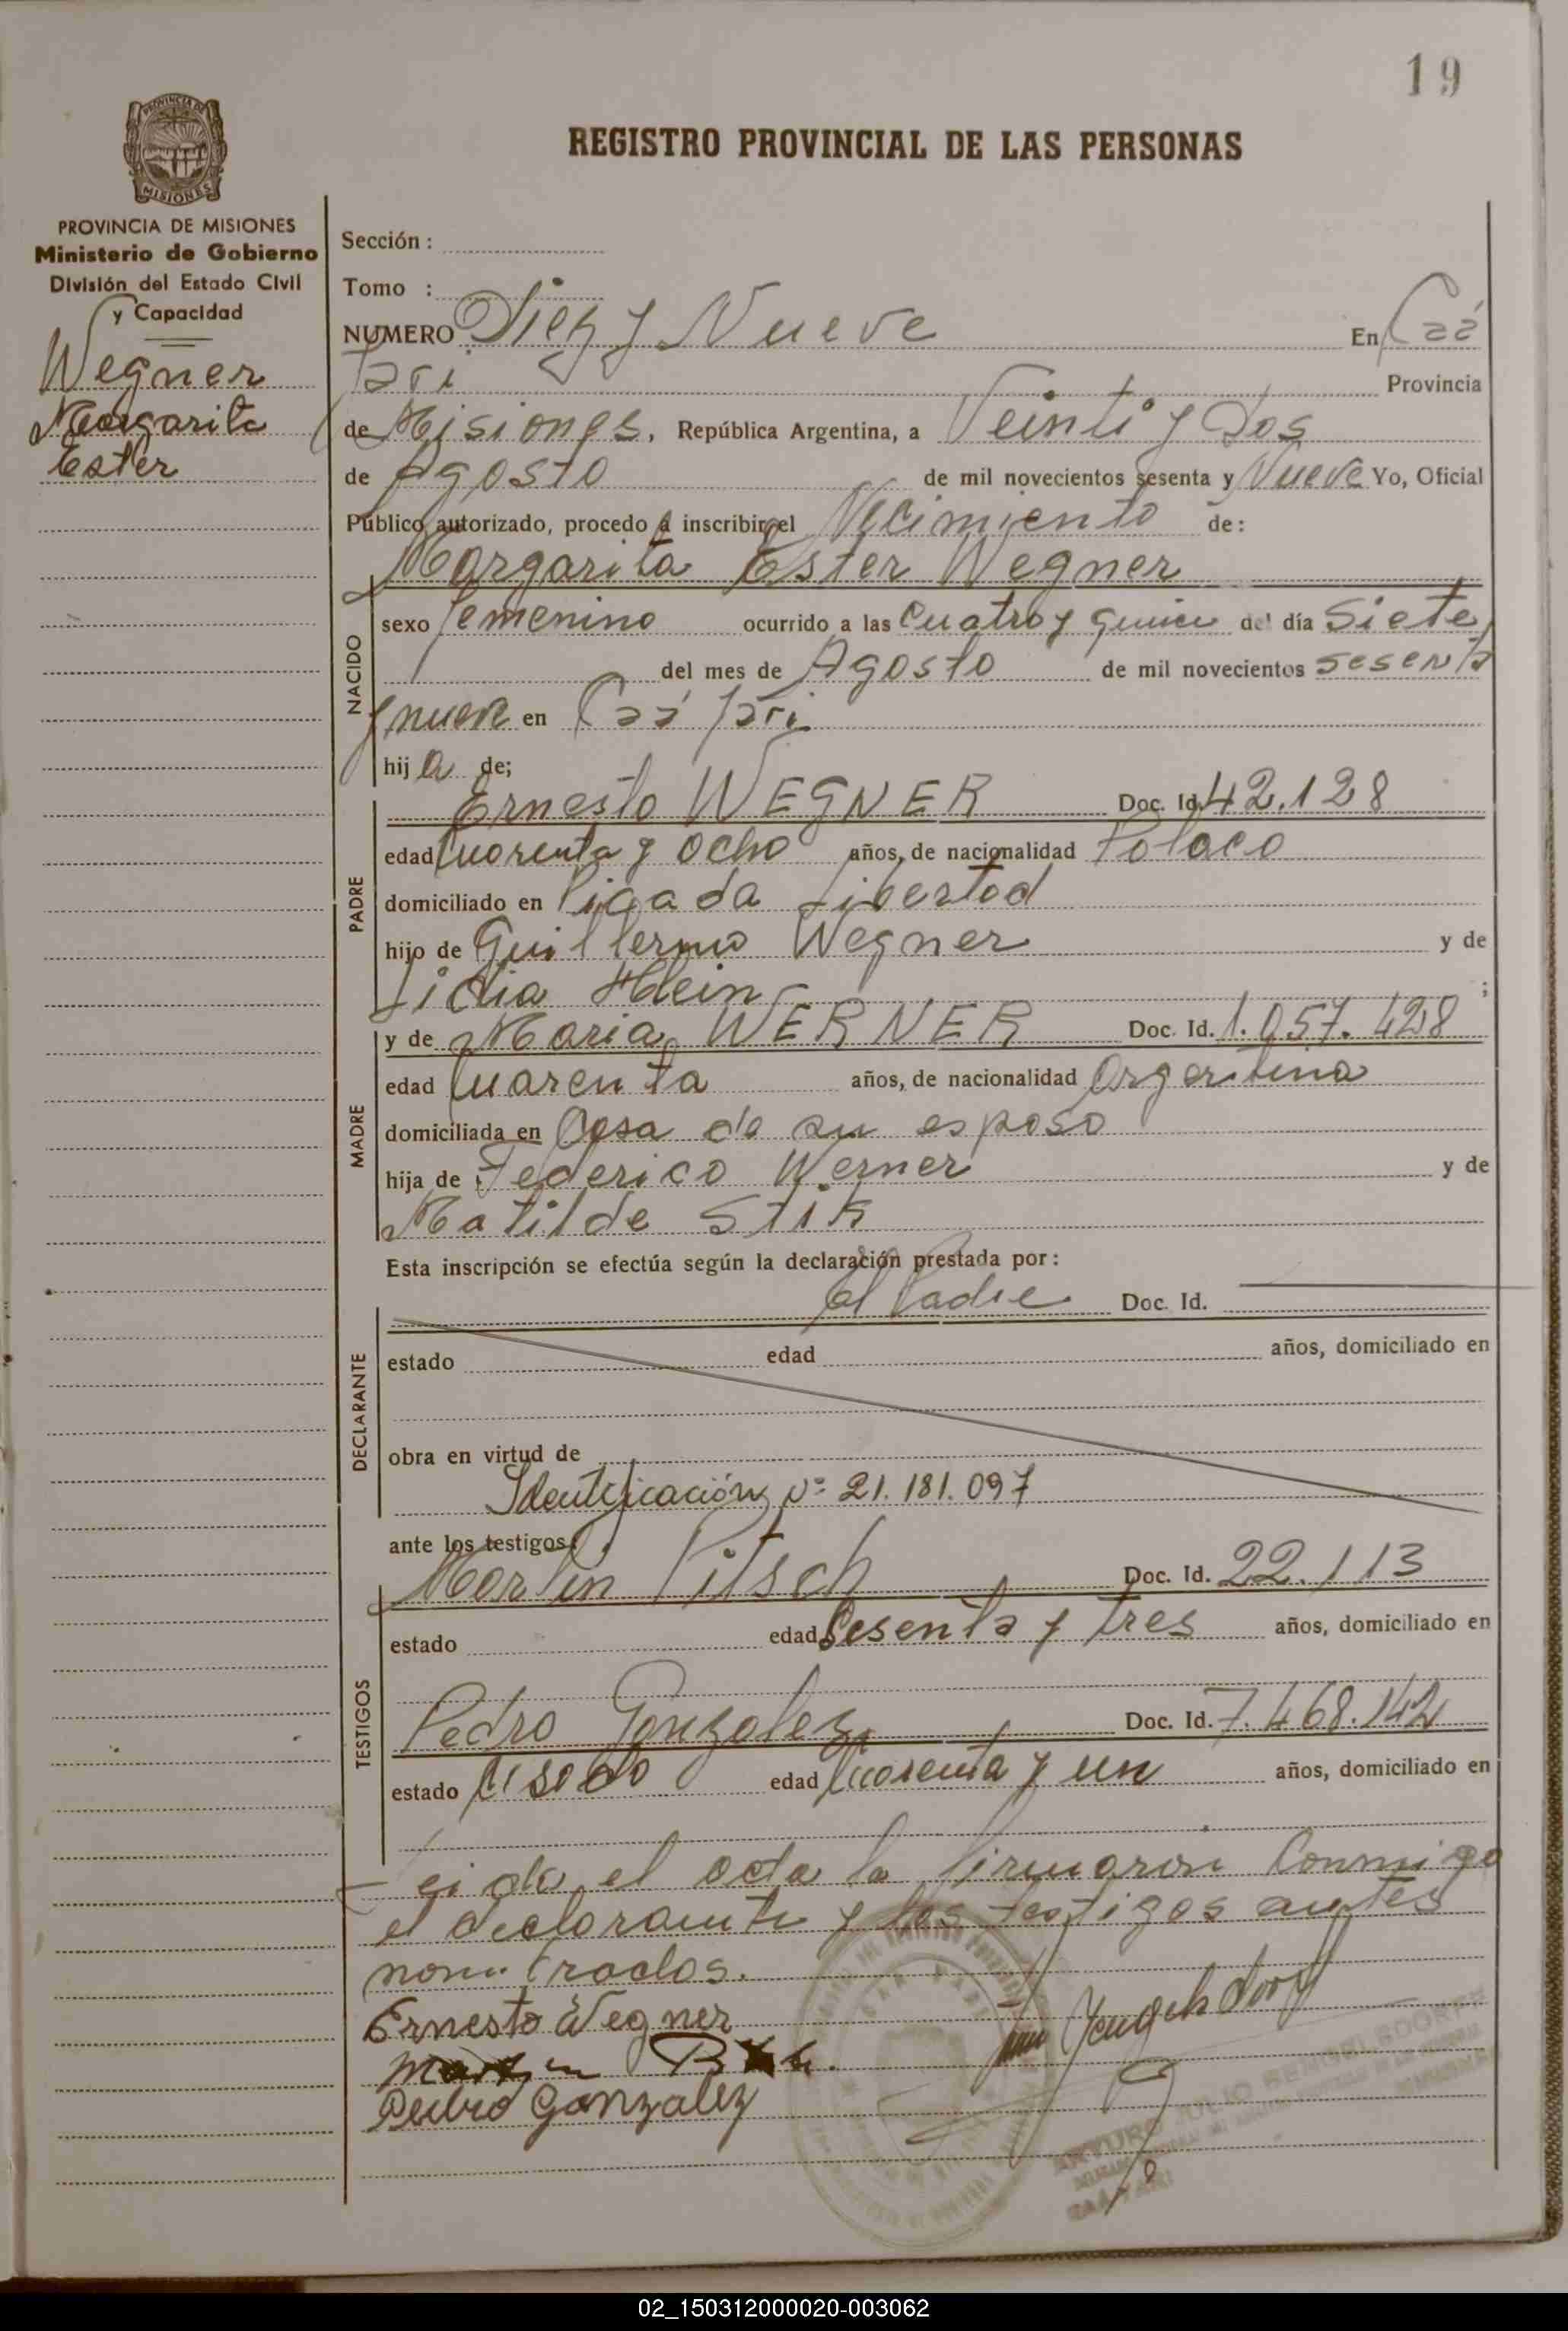 19
REGISTRO PROVINCIAL DE LAS PERSONAS
PROVINCIA DE
MISIONES
PROVINCIA DE MISIONES
Ministerio de Gobierno
División del Estado Civil
y Capacidad
Wegner
Margarita
Ester
Sección :
Tomo :
NUMERO Diez y Nueve En Caá
Yari Provincia
de Misiones, República Argentina, a Veinti y Dos
de Agosto de mil novecientos sesenta y Nueve Yo, Oficial
Público autorizado, procedo a inscribir el Necimiento de:
Margarita Ester Wegner
NACIDO
sexo femenino ocurrido a las Cuatro y quince del día Siete
del mes de Agosto de mil novecientos sesenta
y nueve en Caá Yari
hija de;
PADRE
Ernesto WEGNER Doc. Id. 42.128
edad Cuarenta y ocho años, de nacionalidad Polaco
domiciliado en Picada Libertad
hijo de Guillermo Wegner y de
Lidia Klein ;
MADRE
y de Maria WERNER Doc. Id. 1.057.428
edad Cuarenta años, de nacionalidad Argentina
domiciliada en Casa de su esposo
hija de Federico Werner y de
Matilde
Esta inscripción se efectúa según la declaración prestada por :
DECLARANTE
el Padre Doc. Id.
estado edad años, domiciliado en
obra en virtud de
Identificación Nº 21.181.097
ante los testigos
TESTIGOS
Martin Pitsch Doc. Id. 22.113
estado edad Sesenta y tres años, domiciliado en
Pedro Gonzalez Doc. Id. 7.468.142
estado Casado edad Cuarenta y un años, domiciliado en
Leida el acta la firmaron Conmigo
el declarante y los testigos antes
nombrados.
Ernesto Wegner
Pedro Gonzalez
ARTURO JULIO RENGELSDORFF
CAA-YARI
02_150312000020-003062